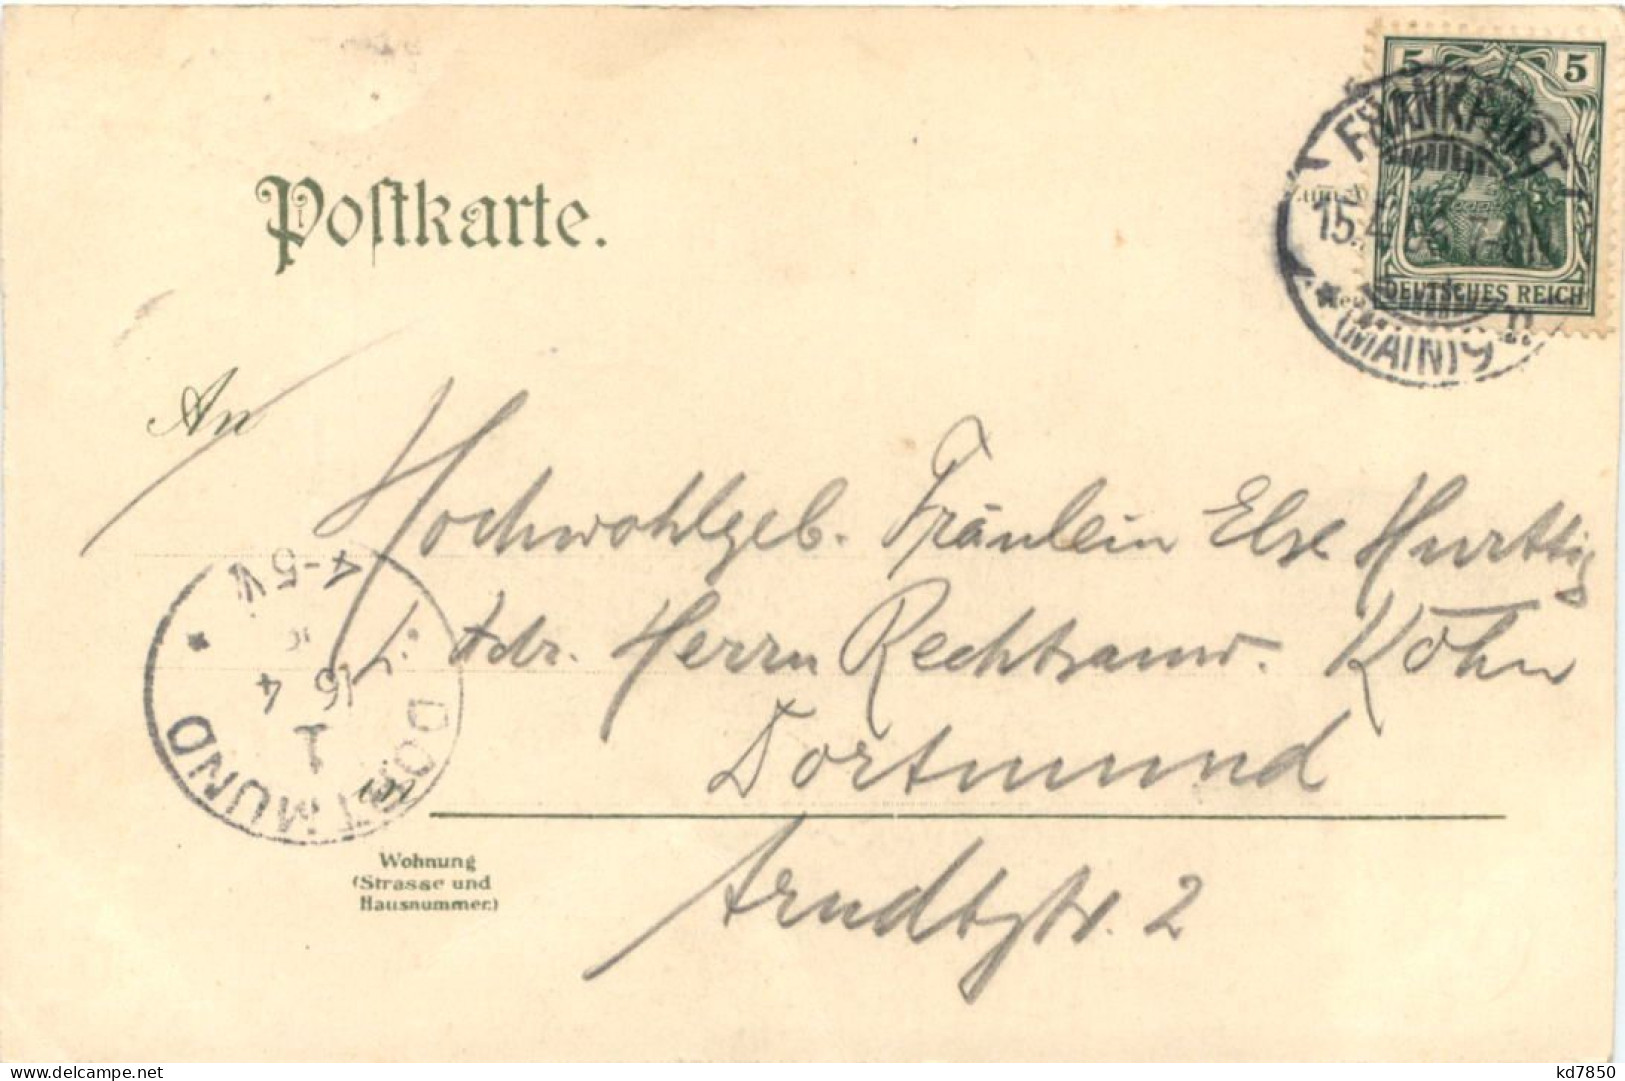 5 5
FRANKFURT
15.4.
DEUTSCHES REICH
* (MAIN) 9
Postkarte.
An
Hochwohlgeb. Fräulein Else Hurttig
Adr. Herrn Rechtsanw. Köhn
in Dortmund
4-5V
16 4
1
DORTMUND
Wohnung
(Strasse und
Hausnummer.)
Arndtstr. 2
www.delcampe.net
kd7850